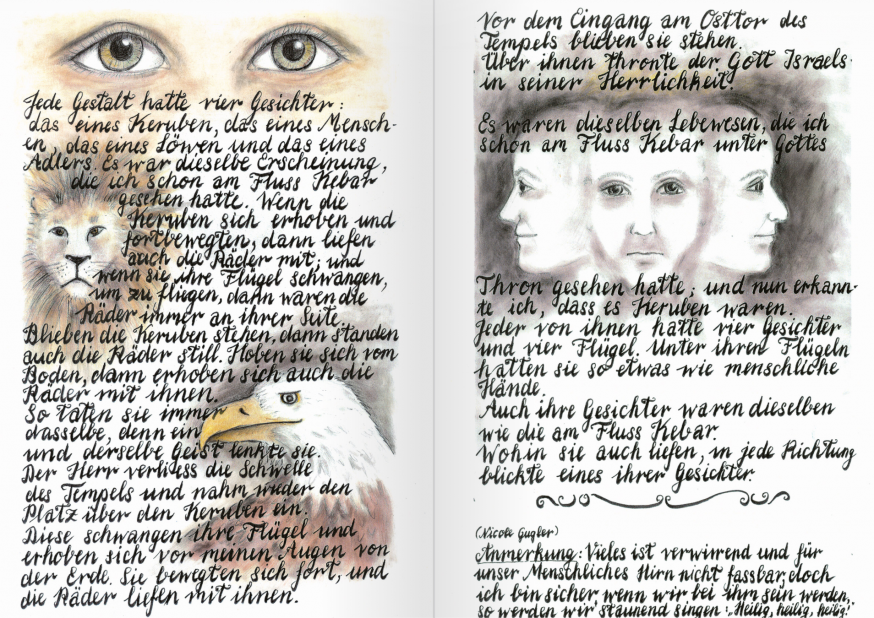 Jede Gestalt hatte vier Gesichter:
das eines Keruben, das eines Mensch-
en, das eines Löwen und das eines
Adlers. Es war dieselbe Erscheinung,
die ich schon am Fluss Kebar
gesehen hatte. Wenn die
Keruben sich erhoben und
fortbewegten, dann liefen
auch die Räder mit; und
wenn sie ihre Flügel schwangen,
um zu flügen, dann waren die
Räder immer an ihrer Seite.
Blieben die Keruben stehen, dann standen
auch die Räder still. Hoben sie sich vom
Boden, dann erhoben sich auch die
Räder mit ihnen.
So taten sie immer
dasselbe, denn ein
und derselbe Geist lenkte sie.
Der Herr verliess die Schwelle
des Tempels und nahm wieder den
Platz über den Keruben ein.
Diese schwangen ihre Flügel und
erhoben sich vor meinen Augen von
der Erde. Sie bewegten sich fort, und
die Räder liefen mit ihnen.
Vor dem Eingang am Osttor des
Tempels blieben sie stehen.
Über ihnen thronte der Gott Israels
in seiner Herrlichkeit!
Es waren dieselben Lebewesen, die ich
schon am Fluss Kebar unter Gottes
Thron gesehen hatte; und nun erkann-
te ich, dass es Keruben waren.
Jeder von ihnen hatte vier Gesichter
und vier Flügel. Unter ihren Flügeln
hatten sie so etwas wie menschliche
Hände.
Auch ihre Gesichter waren dieselben
wie die am Fluss Kebar.
Wohin sie auch liefen, in jede Richtung
blickte eines ihrer Gesichter.
(Nicole Gugler)
Anmerkung: Vieles ist verwirrend und für
unser Menschliches Hirn nicht fassbar, doch
ich bin sicher, wenn wir bei ihm sein werden,
so werden wir staunend singen: „Heilig, heilig, heilig!"